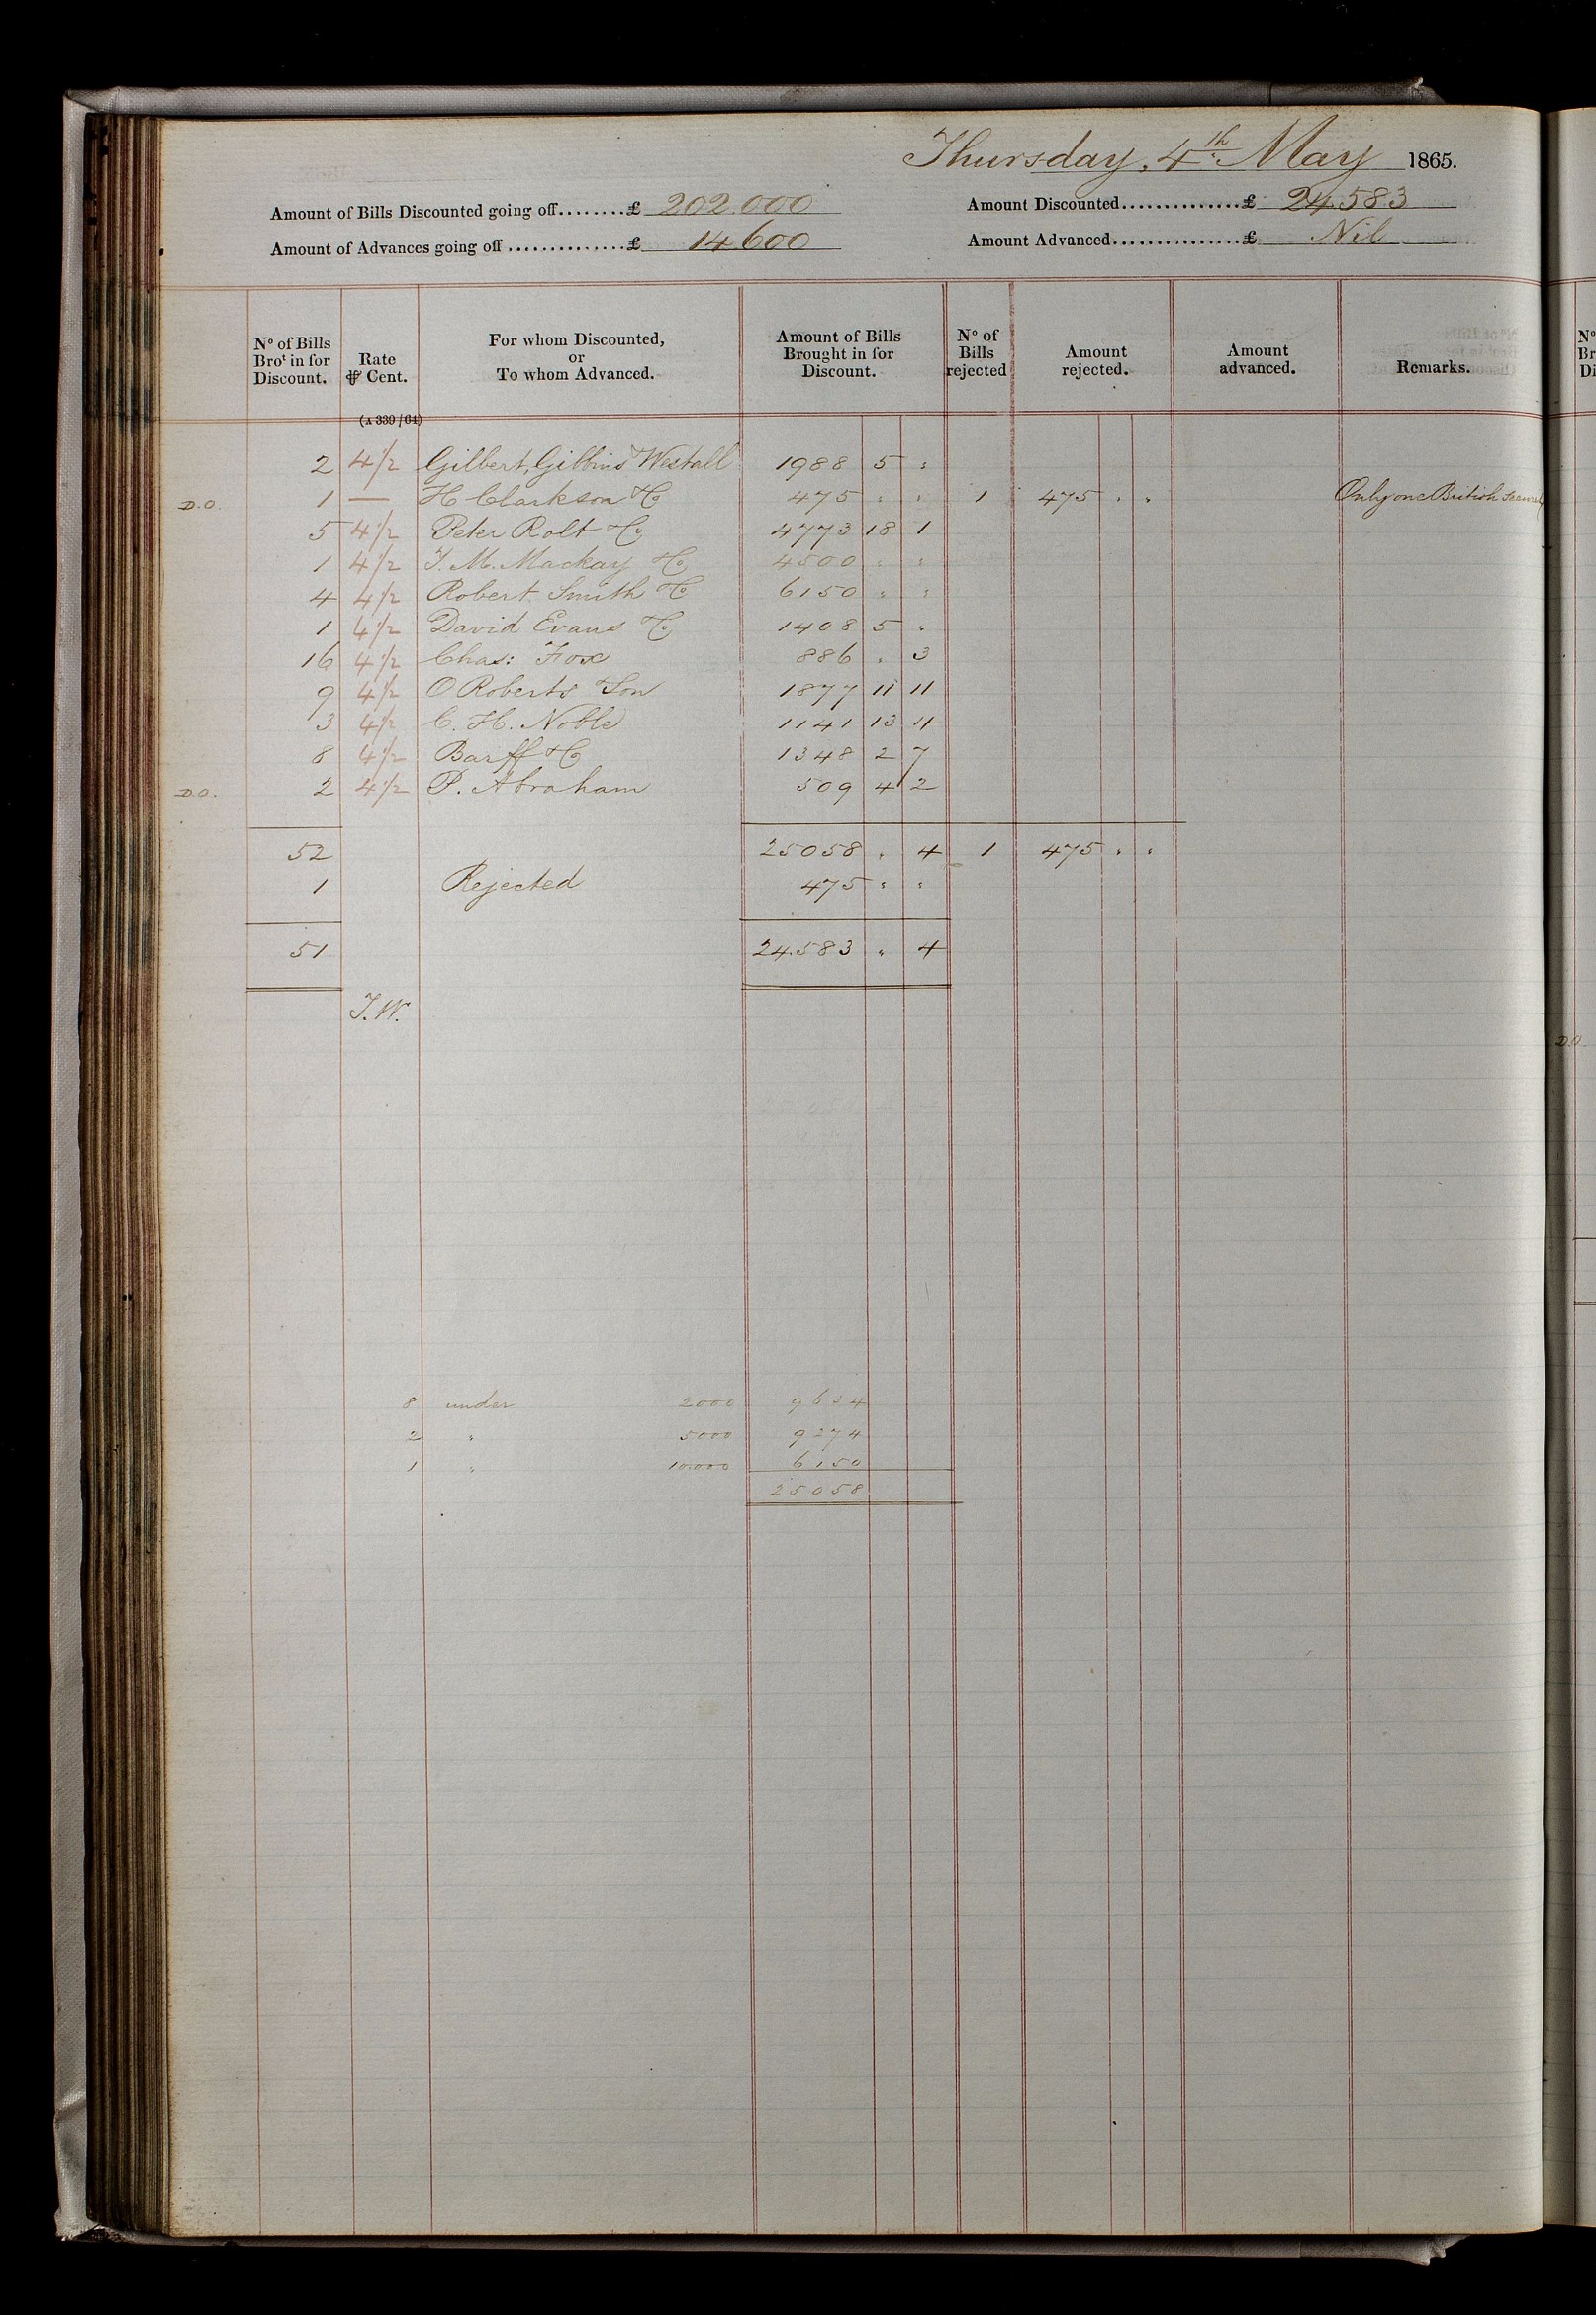 Thursday, 4th May 1865.
Amount of Bills Discounted going off........£ 202.000
Amount Discounted..............£ 24.583
Amount of Advances going off..............£ 14.600
Amount Advanced...............£ Nil
No of Bills Brot in for Discount. Rate ⅌ Cent. For whom Discounted, or To whom Advanced. Amount of Bills Brought in for Discount. No of Bills rejected Amount rejected. Amount advanced. Remarks.
(A 339/64)
2 4½ Gilbert, Gibbins & Westall 1988 5 "
D.O. 1 — H Clarkson & Co 475 " " 1 475 " " Only one British
5 4½ Peter Rolt & Co 4773 18 1
1 4½ T. M. Mackay & Co 4500 " "
4 4½ Robert Smith & Co 6150 " "
1 4½ David Evans & Co 1408 5 "
16 4½ Chas: Fox 886 " 3
9 4½ O Roberts & Son 1877 11 11
3 4½ C. H. Noble 1141 13 4
8 4½ Barff & Co 1348 2 7
D.O. 2 4½ P. Abraham 509 4 2
52 25058 " 4 1 475 " "
1 Rejected 475 " "
51 24.583 " 4
T.W.
8 under 2000 9634
2 " 5000 9274
1 " 10.000 6150
25058
No
Br
Di
D.O.